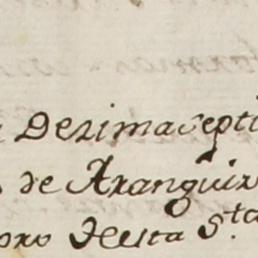 Dezimasepti
de Aranguir
oro Desta S.ta